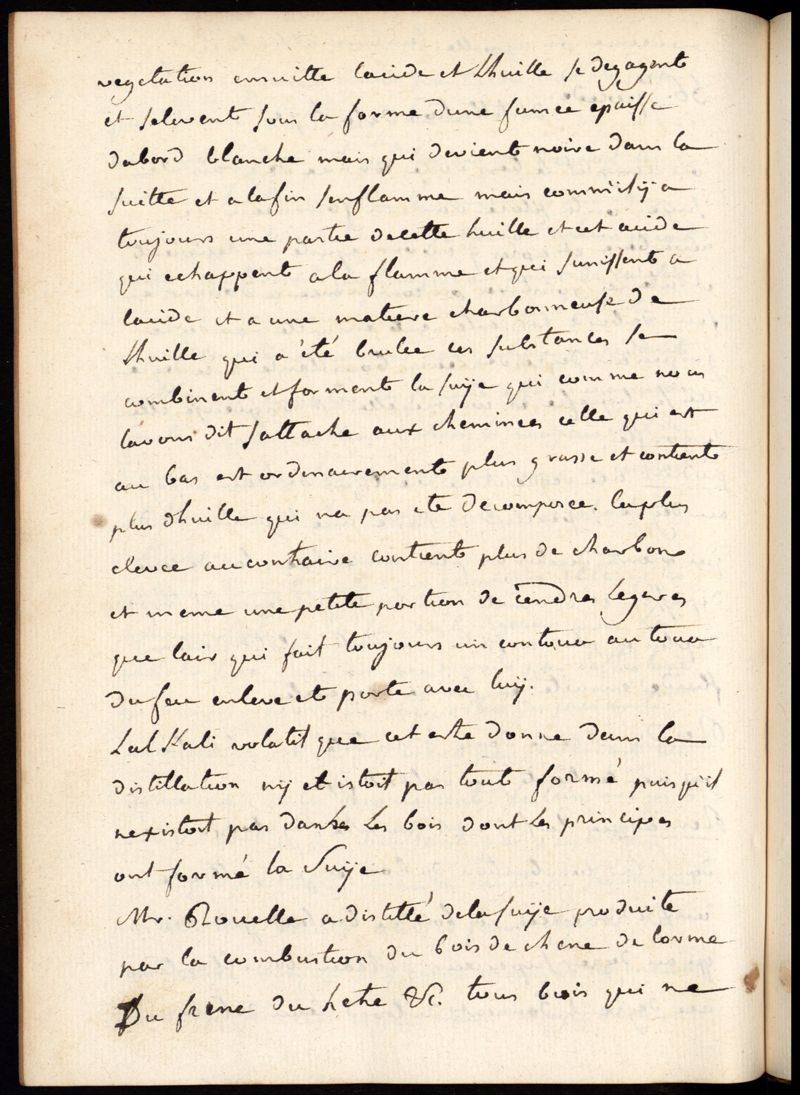 vegetation ensuitte lacide et Lhuille se degagent
et selevent sous la forme dune fumée epaisse
dabord blanche mais qui devient noire dans la
suitte et alafin senflamme mais commil y a
toujours une partie decette huille et cet acide
qui echappent ala flamme et qui sunissent a
lacide et a une matiere charbonneuse de
Lhuille qui a été brulée ces substances se
combinent et forment la suije qui comme nous
lavons dit sattache aux cheminées celle qui est
au bas est ordinairement plus grasse et contient
plus dhuille qui na pas ete decomposée. la plus
elevée aucontraire contient plus de charbon
et meme une petite portion de cendres legeres
que lair qui fait toujours un
du feu enleve et porte avec luij.
Lal Kali volatil que cet donne dans la
distillation nij existoit pas tout formé puisquil
nexistoit pas dans Les bois dont Les principes
ont formé la Suije
Mr. Rouelle a distillé delasuije produite
par la combustion du bois de chene de lorme
Du frene du hetre &c. tous bois qui ne